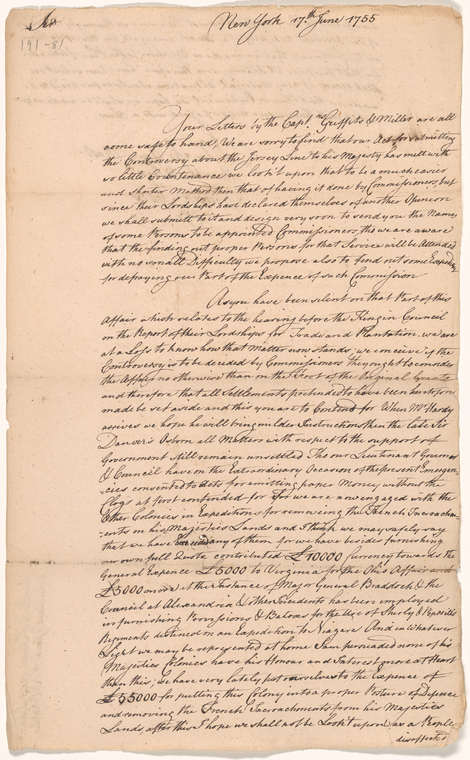 Sir
New York 17th June 1755
191-81
Your Letters by the Capt.ns Griffits & Miller are all
come safe to hand, We are sorry to find that our Act for submitting
the Controversy about the Jersey Line to his Majesty has melt with
so little Countenance we look't upon that to be a much easier
and shorter Method then that of having it done by Commissioners, but
since their Lordships have declared themselves of another Opinion
we shall submitt to it and design very soon to send you the Names
of some Persons to be appointed Commissioners, tho we are aware
that the finding out proper Persons for that Service will be Attended
with no small Difficulty we propose also to find out some
for defraying our Part of the Expence of such Commission
As you have been silent on that Part of this
Affair which relates to the hearing before the King in Council
on the Report of their Lordships for Trade and Plantation. we are
at a Loss to know how that Matter now stands, we conceive if the
Controversy is to be decided by Commissioners they ought to consider
the Affair no otherwise than on the Foot of the Original Grants
and therefore that all Settlements pretended to have been heretofore
made be set aside and this you are to Contend for When Mr Hardy
arrives we hope he will bring milder Instructions than the late Sir
Danvers Osborn all Matters with respect to the support of
Government still remain unsettled Tho our Lieutenant Governor
& Council have on the Extraordinary Occasion of the present Emergen
=cies consented to Acts for emitting paper Money without the
at first contended for for we are now engaged with the
Other Colonies in Expeditions for removing the French Incroachm
=ents on his Majesties Lands and I think we may safely say
that we have any of them, for we have beside furnishing
our own full Quota contributed £10000 Currency towards the
General Expence £5000 to Virginia for the Ohio Affair and
£5000 more at the Instance of Major General Baddock & the
Council at Alexandria & other Incidents has been employed
in furnishing Provissions & Batoas for the Use of Shirly & Pepperells
Regiments destined on an Expedition to Niagara And in Whatever
Light we may be represented at home I am persuaded none of his
Majesties Colonies have his Honour and Interest more at Heart
than this, we have very lately put ourselves to the Expence of
£55000 for putting this Colony into a proper Posture of Defence
and removing the French Incroachments from his Majesties
Lands, after this I hope we shall not be Look't upon as a People
disaffected